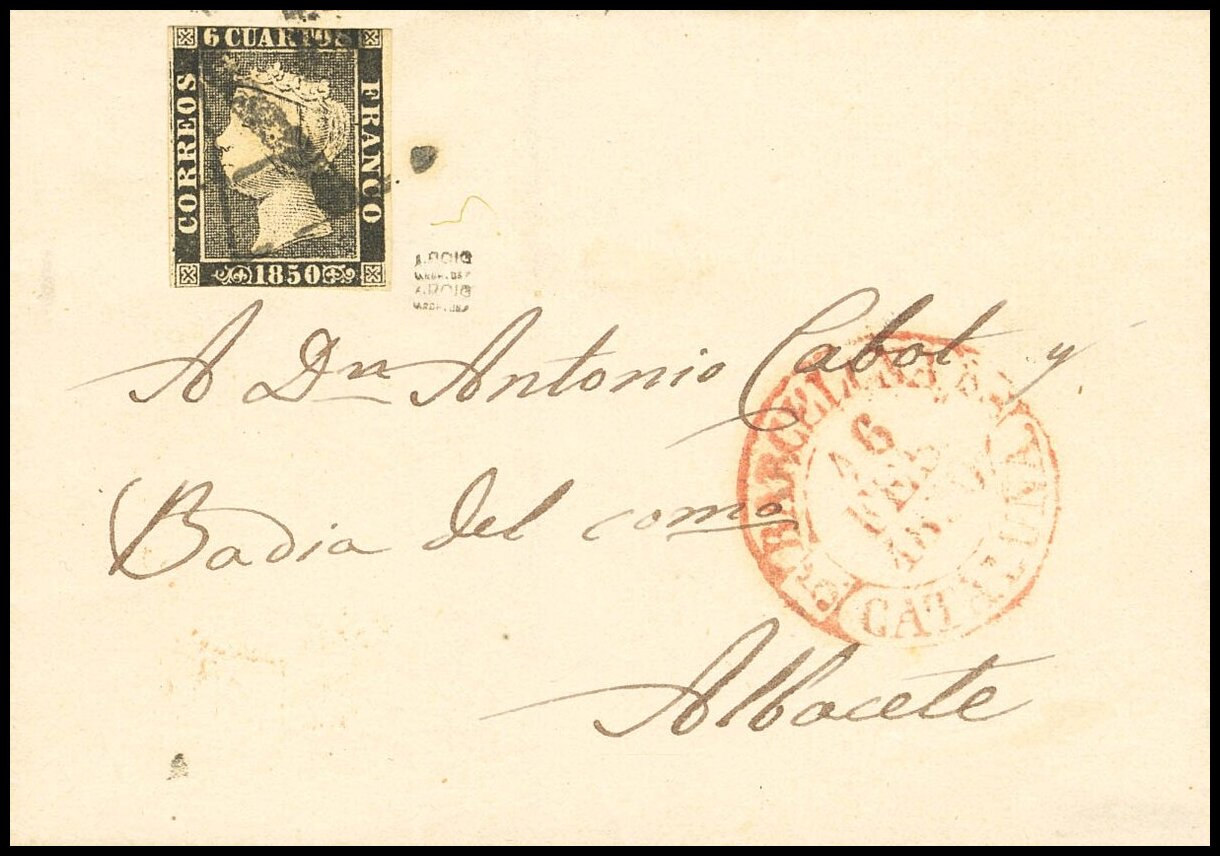 6 CUARTOS
CORREOS
FRANCO
1850
A.ROIG
A.ROIG
A Dn Antonio Cabot y
Badia del como
Albacete
BARCELONA
16
FEB
CATALUÑA